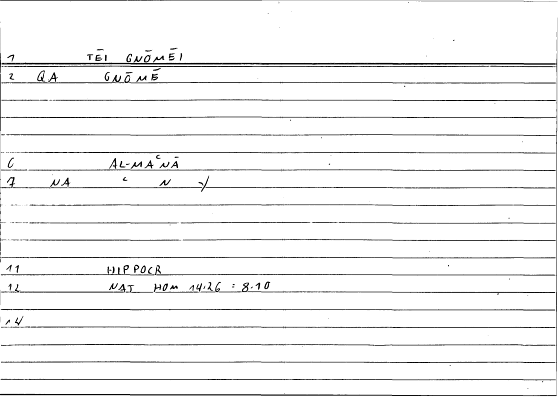 1 TĒI GNŌMĒI
2 QA GNŌMĒ
6 AL-MAʿNĀ
7 NA ʿ N Y
11 HIPPOCR
12 NAT HOM 14.26 = 8.10
14